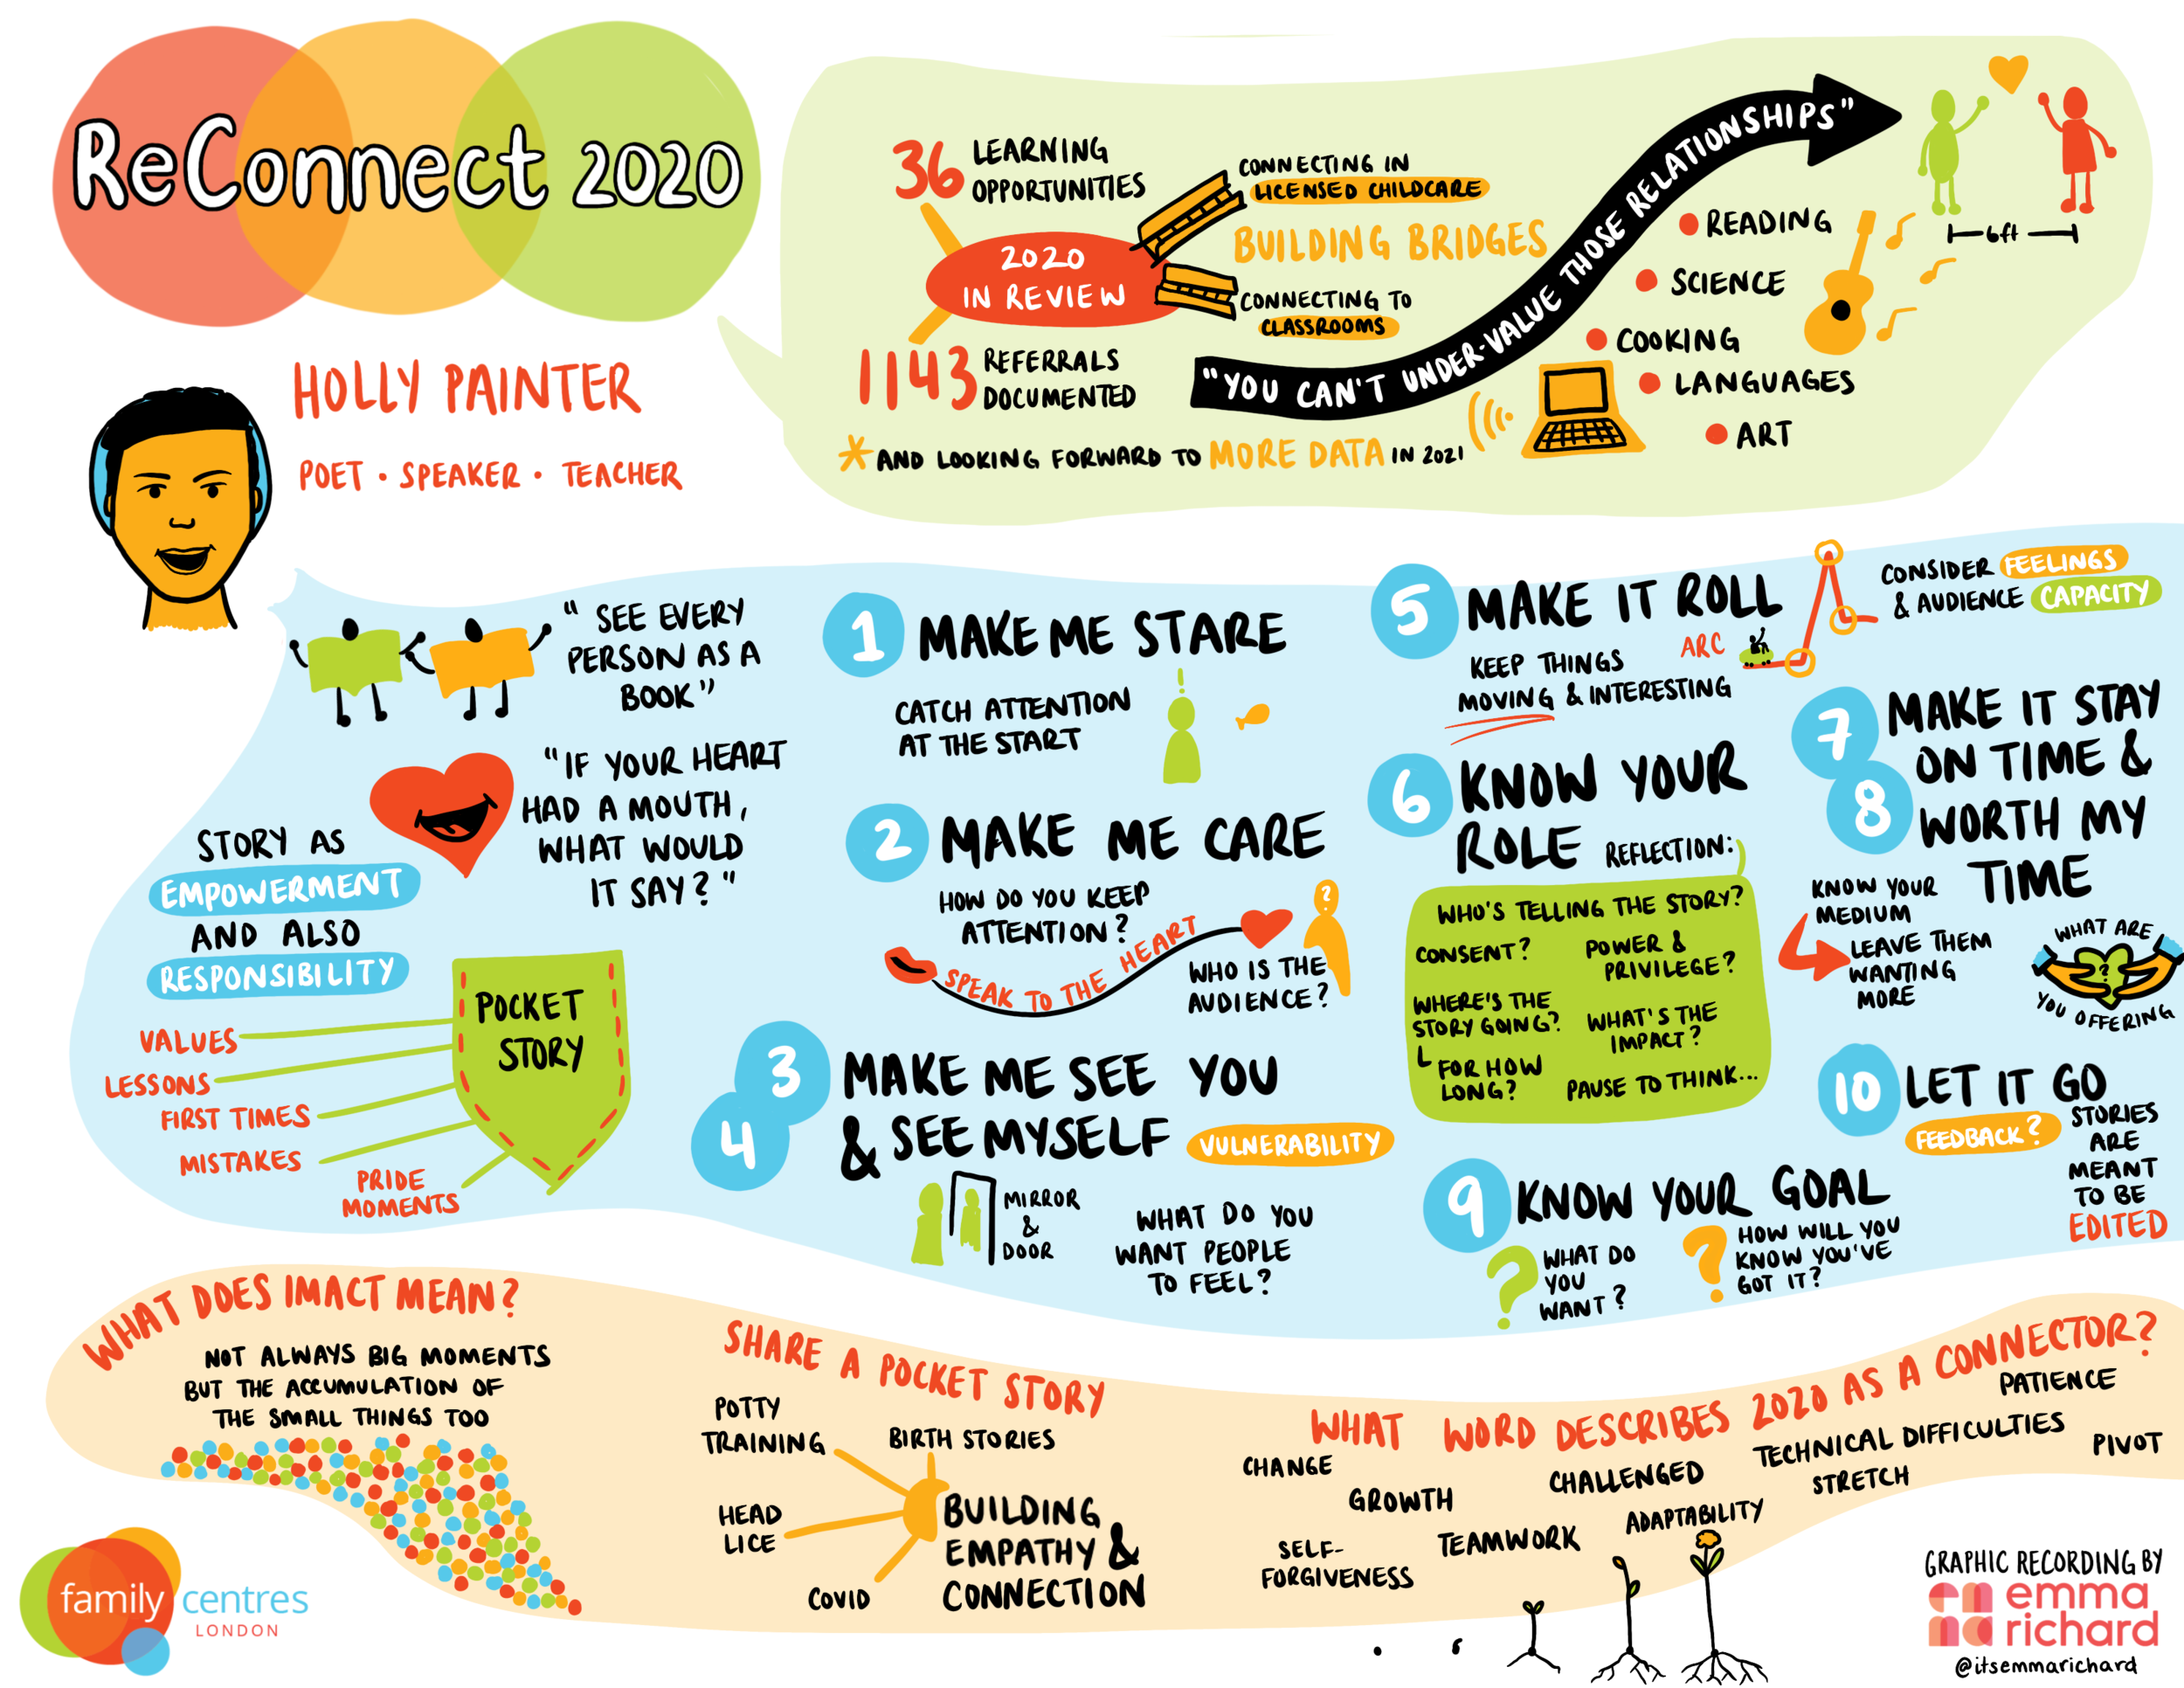 ReConnect 2020
36 LEARNING
OPPORTUNITIES
2020
IN REVIEW
1143 REFERRALS
DOCUMENTED
CONNECTING IN
LICENSED CHILDCARE
BUILDING BRIDGES
CONNECTING TO
CLASSROOMS
* AND LOOKING FORWARD TO MORE DATA IN 2021
"YOU CAN'T UNDER-VALUE THOSE RELATIONSHIPS"
READING
SCIENCE
COOKING
LANGUAGES
ART
6ft
HOLLY PAINTER
POET • SPEAKER • TEACHER
"SEE EVERY
PERSON AS A
BOOK"
"IF YOUR HEART
HAD A MOUTH,
WHAT WOULD
IT SAY?"
STORY AS
EMPOWERMENT
AND ALSO
RESPONSIBILITY
POCKET
STORY
VALUES
LESSONS
FIRST TIMES
MISTAKES
PRIDE
MOMENTS
1 MAKE ME STARE
CATCH ATTENTION
AT THE START
!
2 MAKE ME CARE
HOW DO YOU KEEP
ATTENTION?
SPEAK TO THE HEART
?
WHO IS THE
AUDIENCE?
3 MAKE ME SEE YOU
4 & SEE MYSELF
VULNERABILITY
MIRROR
&
DOOR
WHAT DO YOU
WANT PEOPLE
TO FEEL?
5 MAKE IT ROLL
KEEP THINGS
MOVING & INTERESTING
ARC
CONSIDER FEELINGS
& AUDIENCE CAPACITY
6 KNOW YOUR
ROLE
REFLECTION:
WHO'S TELLING THE STORY?
CONSENT?
POWER &
PRIVILEGE?
WHERE'S THE
STORY GOING?
FOR HOW
LONG?
WHAT'S THE
IMPACT?
PAUSE TO THINK...
7 MAKE IT STAY
ON TIME &
8 WORTH MY
TIME
KNOW YOUR
MEDIUM
LEAVE THEM
WANTING
MORE
WHAT ARE
?
YOU OFFERING
9 KNOW YOUR GOAL
? WHAT DO
YOU
WANT?
? HOW WILL YOU
KNOW YOU'VE
GOT IT?
10 LET IT GO
FEEDBACK?
STORIES
ARE
MEANT
TO BE
EDITED
WHAT DOES IMACT MEAN?
NOT ALWAYS BIG MOMENTS
BUT THE ACCUMULATION OF
THE SMALL THINGS TOO
SHARE A POCKET STORY
POTTY
TRAINING
BIRTH STORIES
HEAD
LICE
COVID
BUILDING
EMPATHY &
CONNECTION
WHAT WORD DESCRIBES 2020 AS A CONNECTOR?
CHANGE
GROWTH
SELF-
FORGIVENESS
TEAMWORK
CHALLENGED
ADAPTABILITY
TECHNICAL DIFFICULTIES
STRETCH
PATIENCE
PIVOT
family centres
LONDON
GRAPHIC RECORDING BY
emma
richard
@itsemmarichard